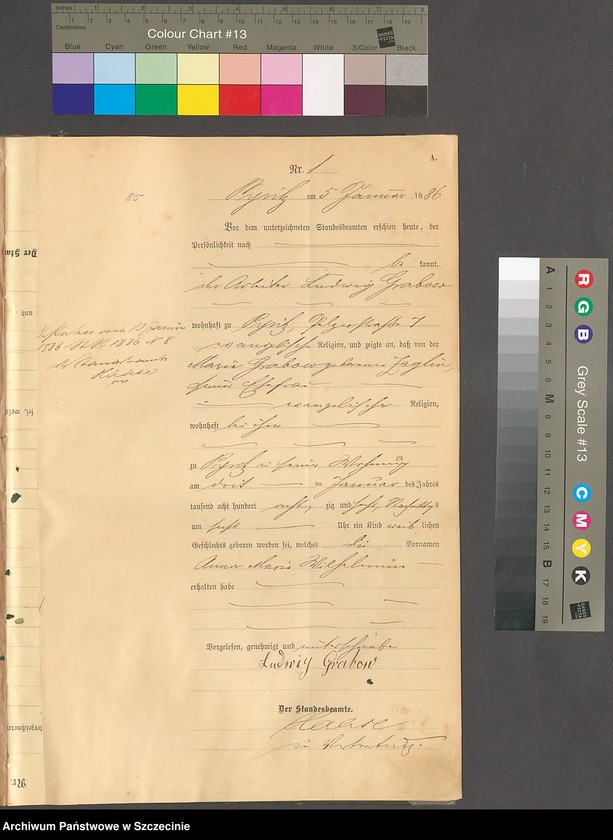 Inches 1 2 3 4 5 6 7 8
Centimetres 1 2 3 4 5 6 7 8 9 10 11 12 13 14 15 16 17 18 19
Colour Chart #13
Blue Cyan Green Yellow Red Magenta White 3/Color Black
A.
Nr. 1
85
Pyritz am 5 Januar 1886
Vor dem unterzeichneten Standesbeamten erschien heute, der
Persönlichkeit nach
be kannt,
der Arbeiter Ludwig Grabow
wohnhaft zu Pyritz, 7
evangelischer Religion, und zeigte an, daß von der
Marie Grabow geborenen
seiner Ehefrau
evangelischer Religion,
wohnhaft bei ihm
zu Pyritz in seiner Wohnung
am ten Januar des Jahres
tausend acht hundert achtzig und sechs, Nachmittags
um sechs Uhr ein Kind weib lichen
Geschlechts geboren worden sei, welches die Vornamen
Anna Marie Wilhelmine
erhalten habe
Vorgelesen, genehmigt und unterschrieben
Ludwig Grabow
Der Standesbeamte.
in Vertretung.
Gestorben am 13 Januar
1886 8
Der Standesbeamte
A 1 2 3 4 5 6 M 8 9 10 11 12 13 14 15 B 17 18 19
R G B
Grey Scale #13
C M Y K
Archiwum Państwowe w Szczecinie